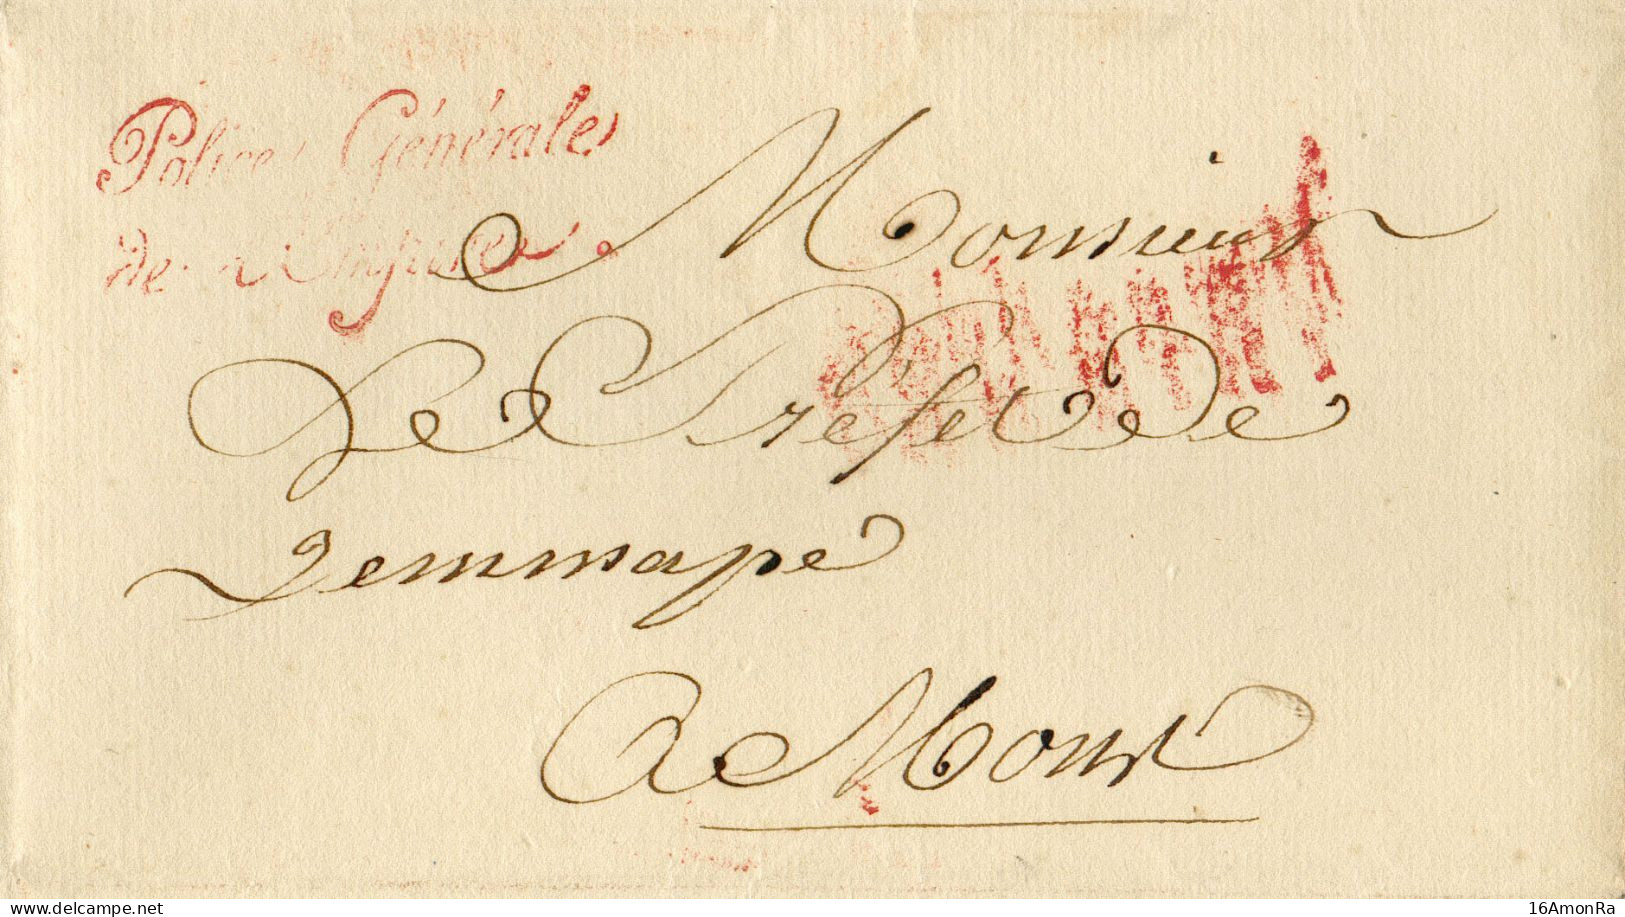 Police Générale
de l'Empire.
Monsieur
Le Prefet de
Jemmape
A Mons
delcampe.net
16AmonRa